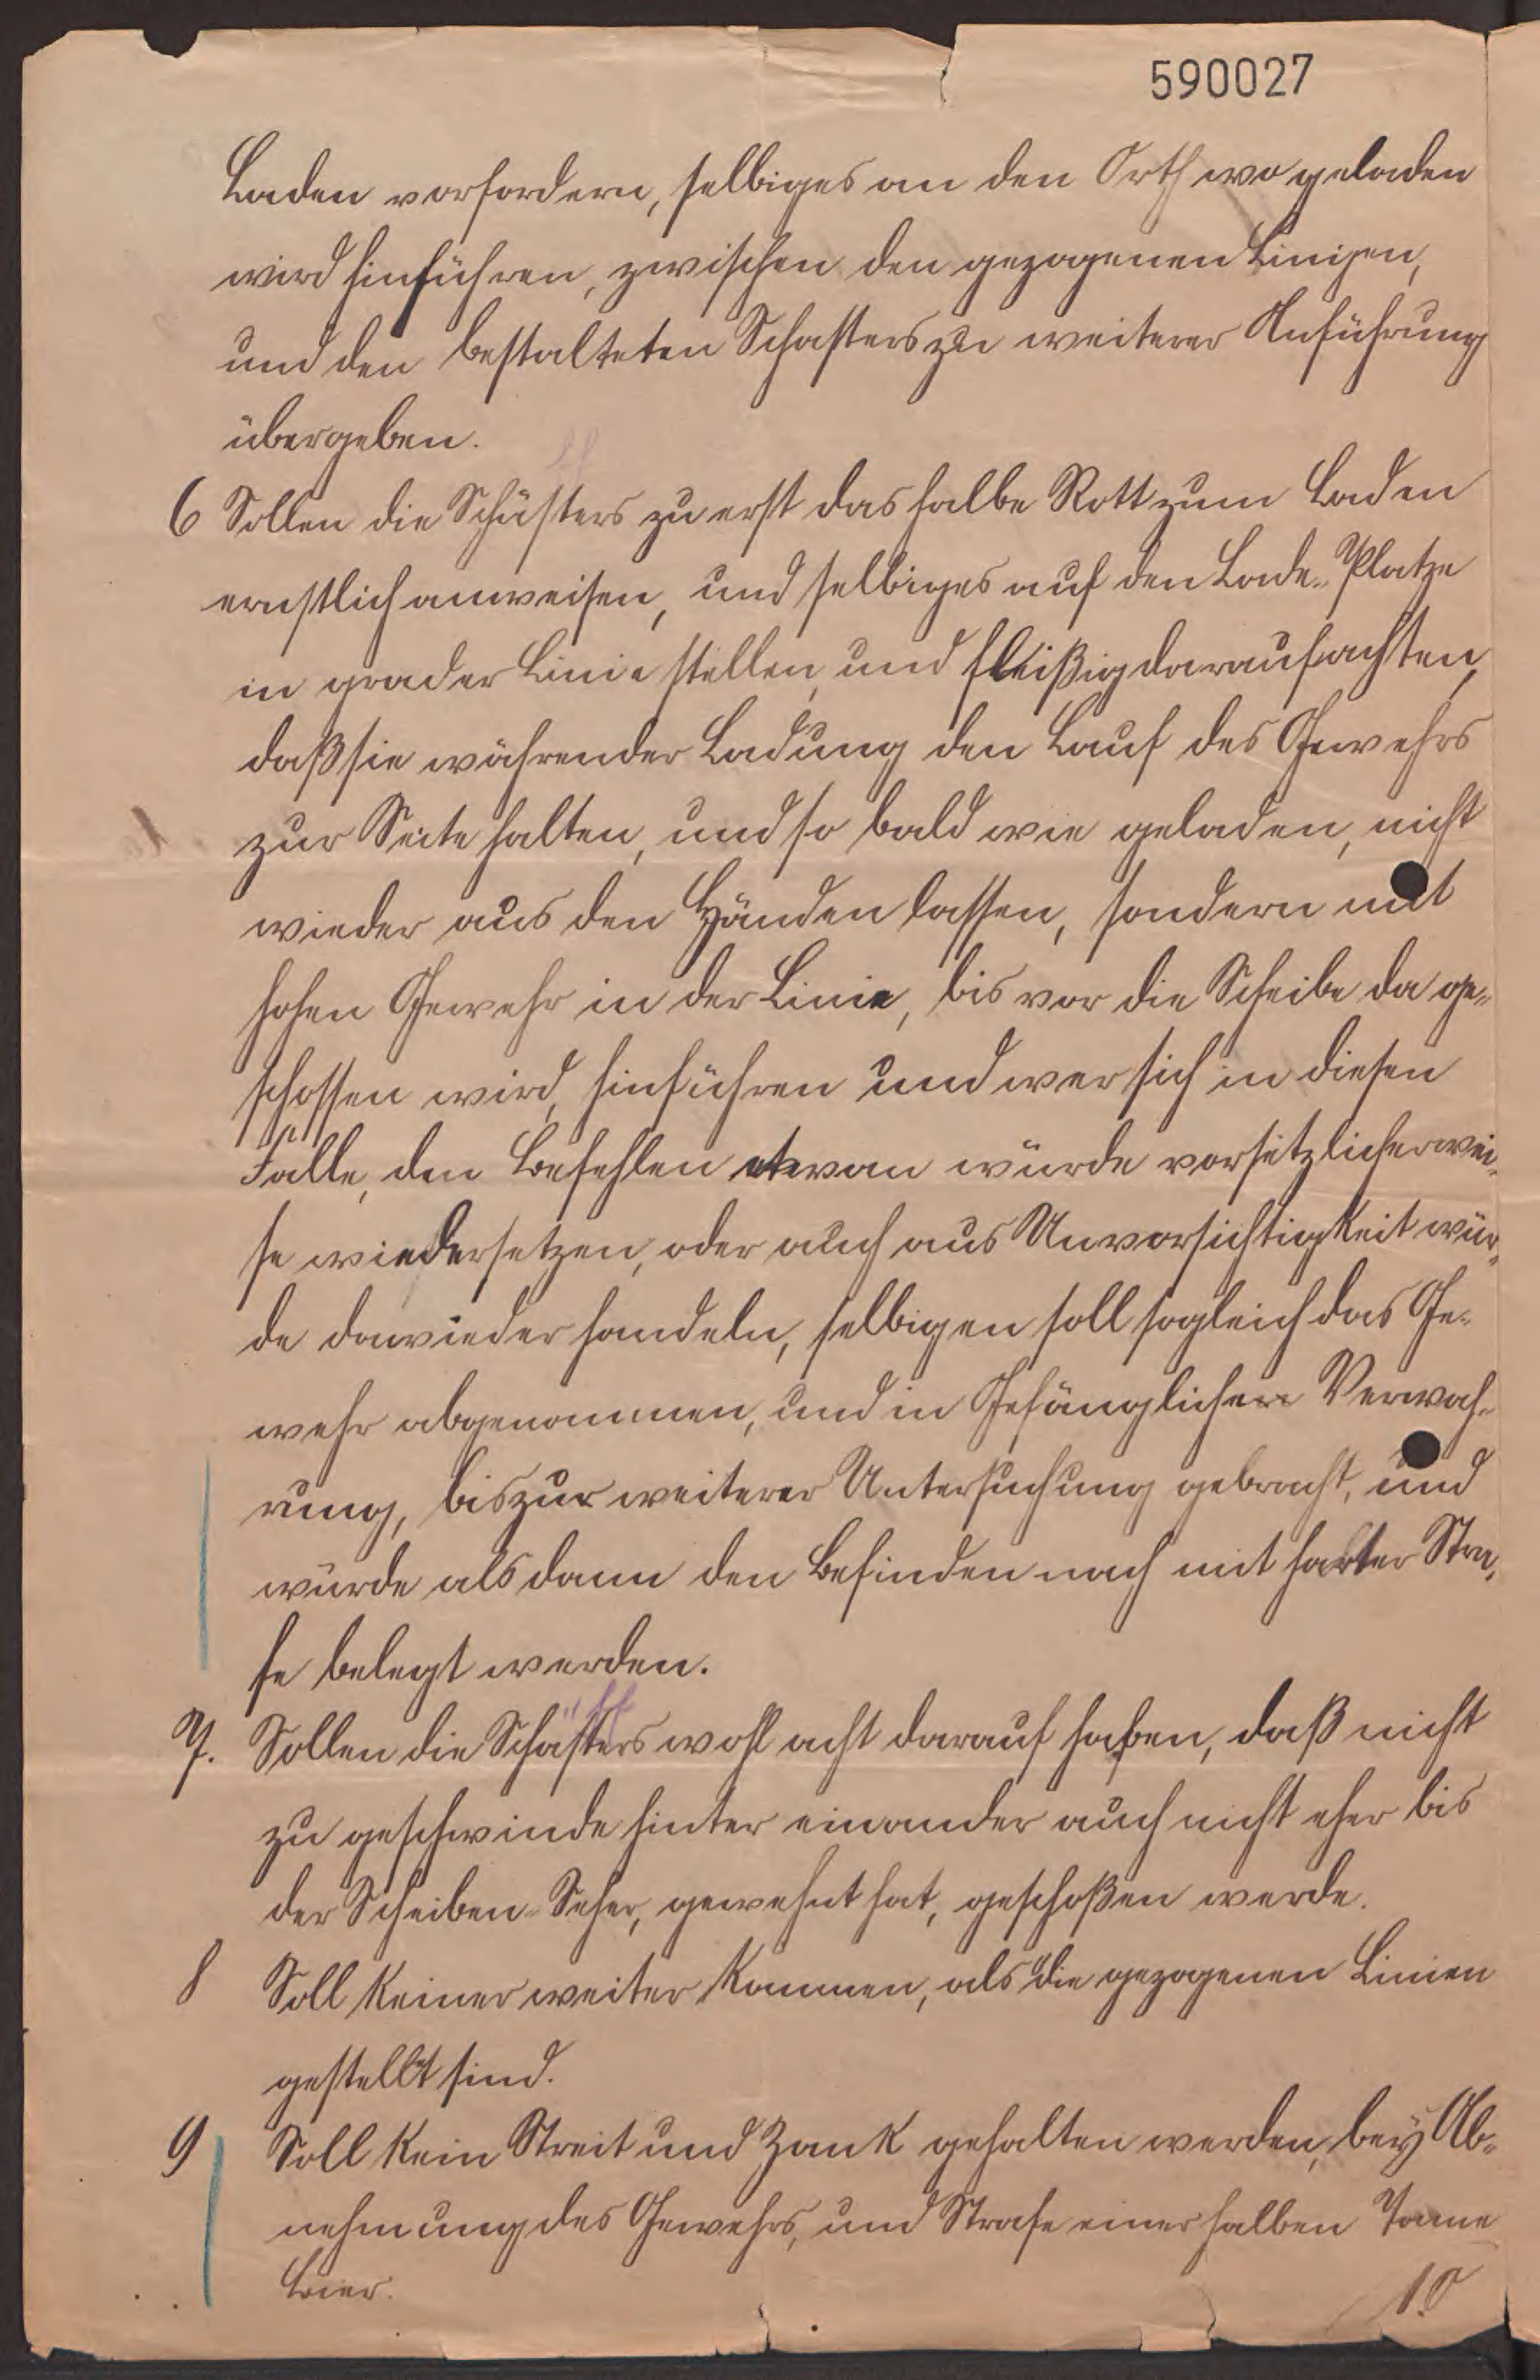 590027
Laden vorfordern, selbiges an den Orth wo geladen
wird hinführen, zwischen den gezogenen Linigen,
und den bestalteten Schafters zu weiterer Anführung
übergeben.
6 Sollen die Schäfters zu erst das halbe Rott zum Laden
ernstlich anweisen, und selbiges auf den Lade-Platze
in grader Linie stellen, und fleißig darauf achten,
daß sie währender Ladung den Lauf des Gewehrs
zur Seite halten, und so bald wie geladen, nicht
wieder aus den Händen lassen, sondern mit
hohen Gewehr in der Linie, bis vor die Scheibe da ge-
schossen wird, hinführen und wer sich in diesen
Fälle, den Befehlen etwan würde vorsetzlicherwei-
se wiedersetzen, oder auch aus Unvorsichtigkeit wür-
de dawieder handeln, selbigen soll sogleich das Ge-
wehr abgenommen, und in Gefänglicher Verwah-
rung, bis zur weiterer Untersuchung gebracht, und
würde als dann den Befinden nach mit harter Stra-
fe belegt werden.
7. Sollen die Schäffers wohl acht darauf haben, daß nicht
zu geschwinde hinter einander auch nicht eher bis
der Scheiben-Seher, gewehnt hat, geschoßen werde.
8 Soll Keiner weiter Kommen, als die gezogenen Linien
gestellt sind.
9 Soll Kein Streit und Zank gehalten werden, bey Ab-
nehmung des Gewehrs, und Strafe einer halben Tonne
Bier.
10